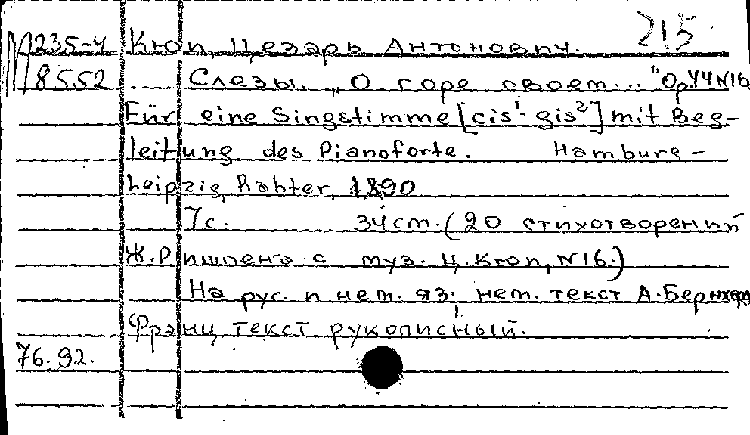 215
М235-4 Кюи, Цезарь Антонович.
8552 ... Слезы. „О горе своем..." Op.44N16
Für eine Singstimme [cis¹-gis²] mit Beg-
leitung des Pianoforte. Hamburg-
Leipzig, Rahter, 1890
7с. 34см. (20 стихотворений
Ж.Ришпена с муз. Ц.Кюи, N16.)
На рус. и нем. яз.; нем. текст А.Бернхард
Франц текст рукописный.
76.92.